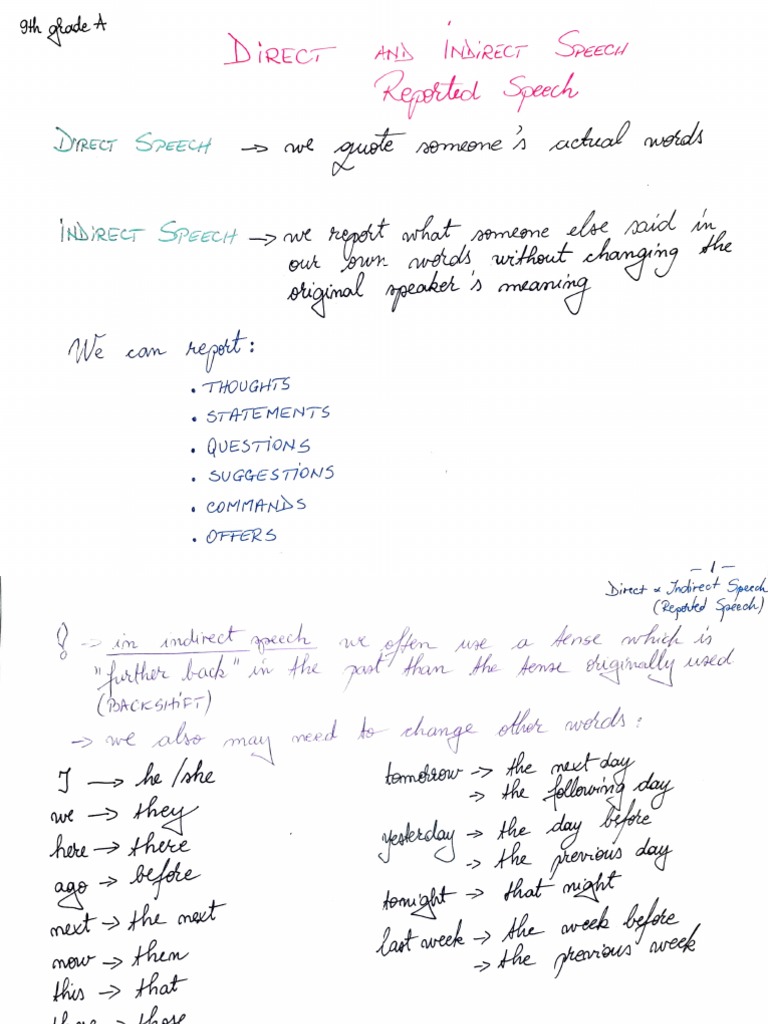 9th grade A
DIRECT AND INDIRECT SPEECH
Reported Speech
DIRECT SPEECH → we quote someone's actual words
INDIRECT SPEECH → we report what someone else said in
our own words without changing the
original speaker's meaning
We can report:
• THOUGHTS
• STATEMENTS
• QUESTIONS
• SUGGESTIONS
• COMMANDS
• OFFERS
- 1 -
Direct & Indirect Speech
(Reported Speech)
! → in indirect speech we often use a tense which is
"further back" in the past than the tense originally used
(BACKSHIFT)
→ we also may need to change other words:
I → he/she
we → they
here → there
ago → before
next → the next
now → then
this → that
those
tomorrow → the next day
→ the following day
yesterday → the day before
→ the previous day
tonight → that night
last week → the week before
→ the previous week